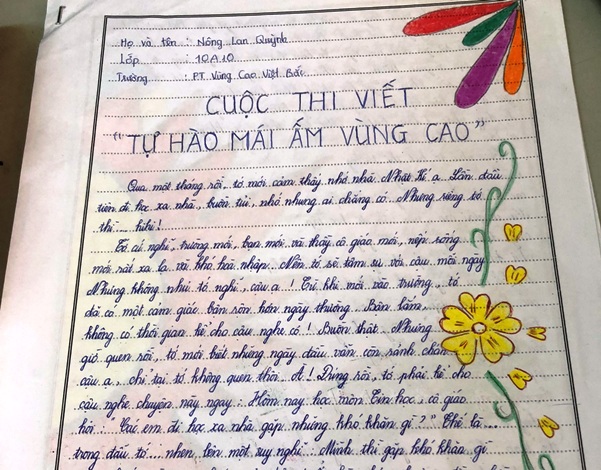 Họ và tên : Nông Lan Quỳnh
Lớp : 10A10
Trường : PT. Vùng Cao Việt Bắc
CUỘC THI VIẾT
"TỰ HÀO MÁI ẤM VÙNG CAO"
Qua một tháng rồi, tớ mới cảm thấy nhớ nhà. Nhật Kí ạ. Lần đầu
tiên đi học xa nhà, buồn tủi, nhớ nhung ai chẳng có. Nhưng riêng tớ
thì... hihi!
Tớ cứ nghĩ, trường mới, bạn mới và thầy cô giáo mới, nếp sống
mới rất xa lạ và khó hoà nhập. Nên tớ sẽ tâm sự với cậu mỗi ngày
Nhưng không như tớ nghĩ, cậu ạ! Từ khi mới vào trường, tớ
đã có một cảm giác bận rộn hơn ngày thường. Bận lắm,
không có thời gian kể cho cậu nghe cơ! Buồn thật. Nhưng
giờ quen rồi, tớ mới biết những ngày đầu vẫn còn rảnh chán
cậu ạ, chỉ tại tớ không quen thôi. À! Đúng rồi, tớ phải kể cho
cậu nghe chuyện này ngay. Hôm nay học môn Tin học, cô giáo
hỏi: "Các em đi học xa nhà gặp những khó khăn gì?" Thế là...
trong đầu tớ... nhen lên một suy nghĩ. Mình thì gặp khó khăn gì